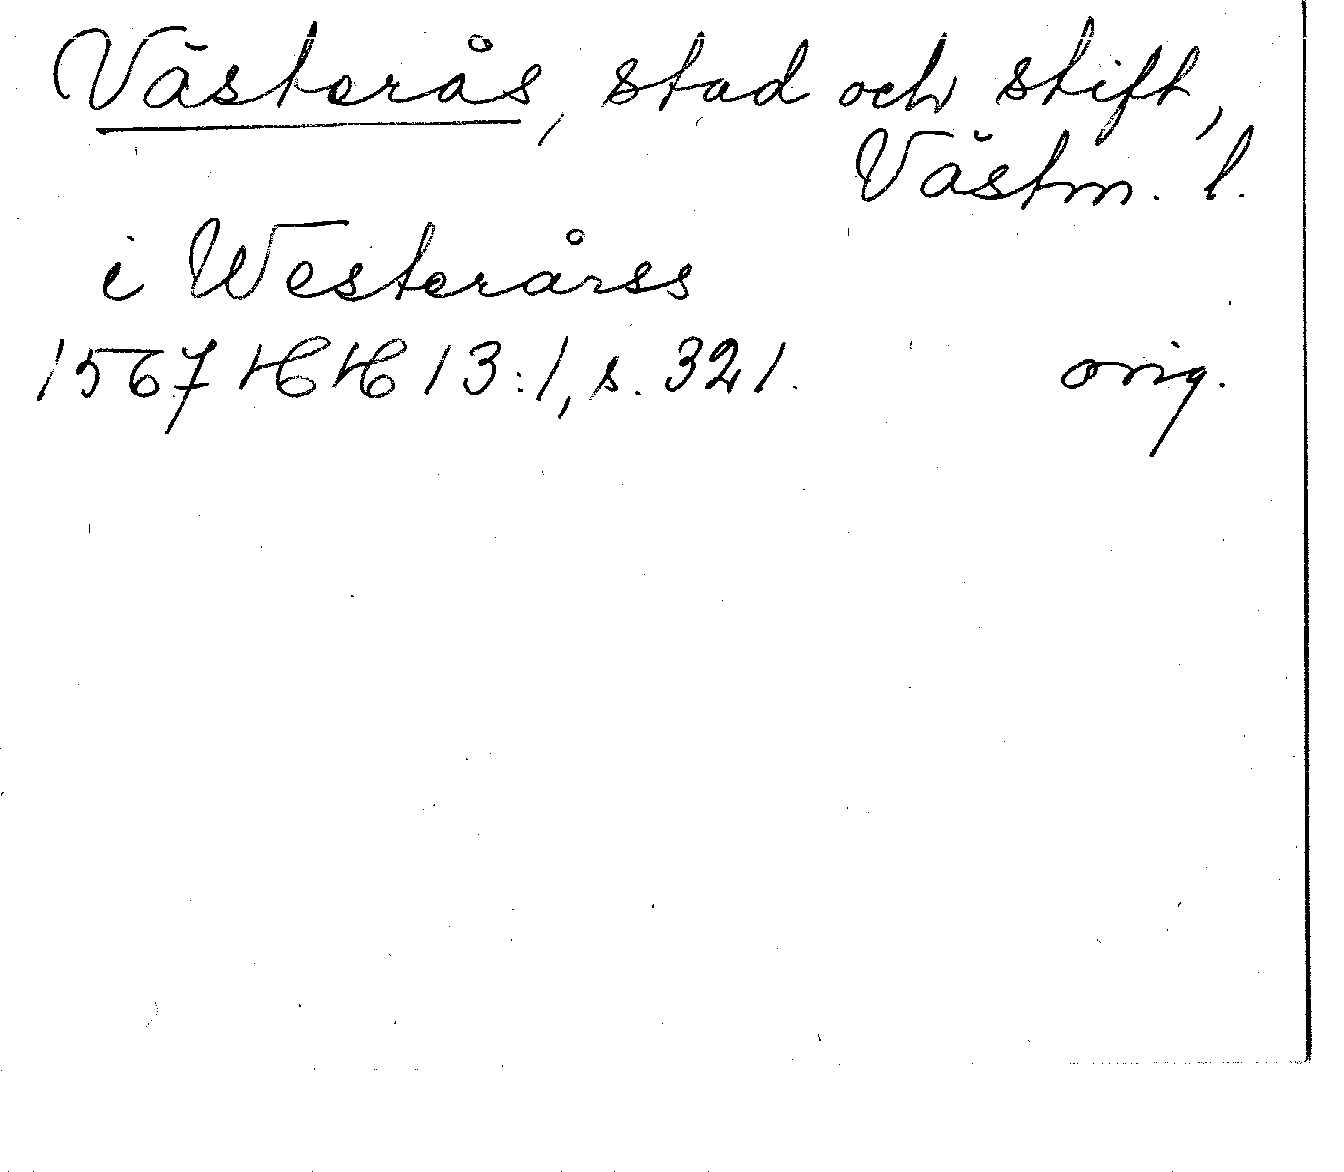 Västerås, stad och stift,
Västm. l.
i Westerårss
1567 HH 13:1, s. 321. orig.